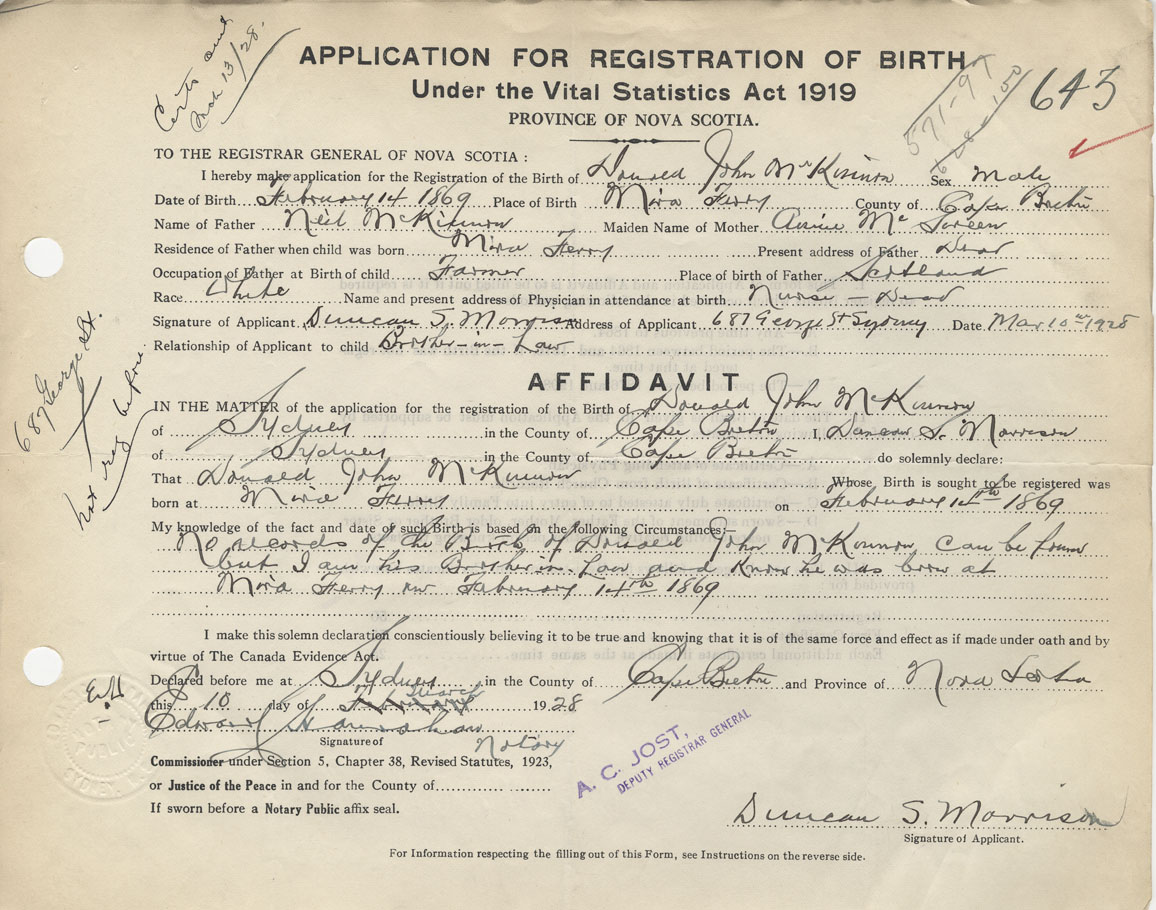 Certs sent
Mch 13/28.
APPLICATION FOR REGISTRATION OF BIRTH
Under the Vital Statistics Act 1919
PROVINCE OF NOVA SCOTIA.
571-97
643
TO THE REGISTRAR GENERAL OF NOVA SCOTIA :
I hereby make application for the Registration of the Birth of Donald John McKinnon Sex Male
Date of Birth February 14 1869 Place of Birth Mira Ferry County of Cape Breton
Name of Father Neil McKinnon Maiden Name of Mother Annie Mc
Residence of Father when child was born Mira Ferry Present address of Father Dead
Occupation of Father at Birth of child Farmer Place of birth of Father Scotland
Race White Name and present address of Physician in attendance at birth Nurse - Dead
Signature of Applicant Duncan S. Morrison Address of Applicant 687 George St Sydney Date Mar 10th 1928
Relationship of Applicant to child Brother-in-Law
687 George St.
not reg before
AFFIDAVIT
IN THE MATTER of the application for the registration of the Birth of Donald John McKinnon
of Sydney in the County of Cape Breton I, Duncan S. Morrison
of Sydney in the County of Cape Breton do solemnly declare:
That Donald John McKinnon Whose Birth is sought to be registered was
born at Mira Ferry on February 14th 1869
My knowledge of the fact and date of such Birth is based on the following Circumstances:—
No records of the Birth of Donald John McKinnon can be found
but I am his Brother in Law and know he was born at
Mira Ferry on February 14th 1869
I make this solemn declaration conscientiously believing it to be true and knowing that it is of the same force and effect as if made under oath and by
virtue of The Canada Evidence Act.
Declared before me at Sydney in the County of Cape Breton and Province of Nova Scotia
this 10 day of February March 1928
Edward
Signature of Notary
Commissioner under Section 5, Chapter 38, Revised Statutes, 1923,
or Justice of the Peace in and for the County of
If sworn before a Notary Public affix seal.
A. C. JOST,
DEPUTY REGISTRAR GENERAL
Duncan S. Morrison
Signature of Applicant.
For Information respecting the filling out of this Form, see Instructions on the reverse side.